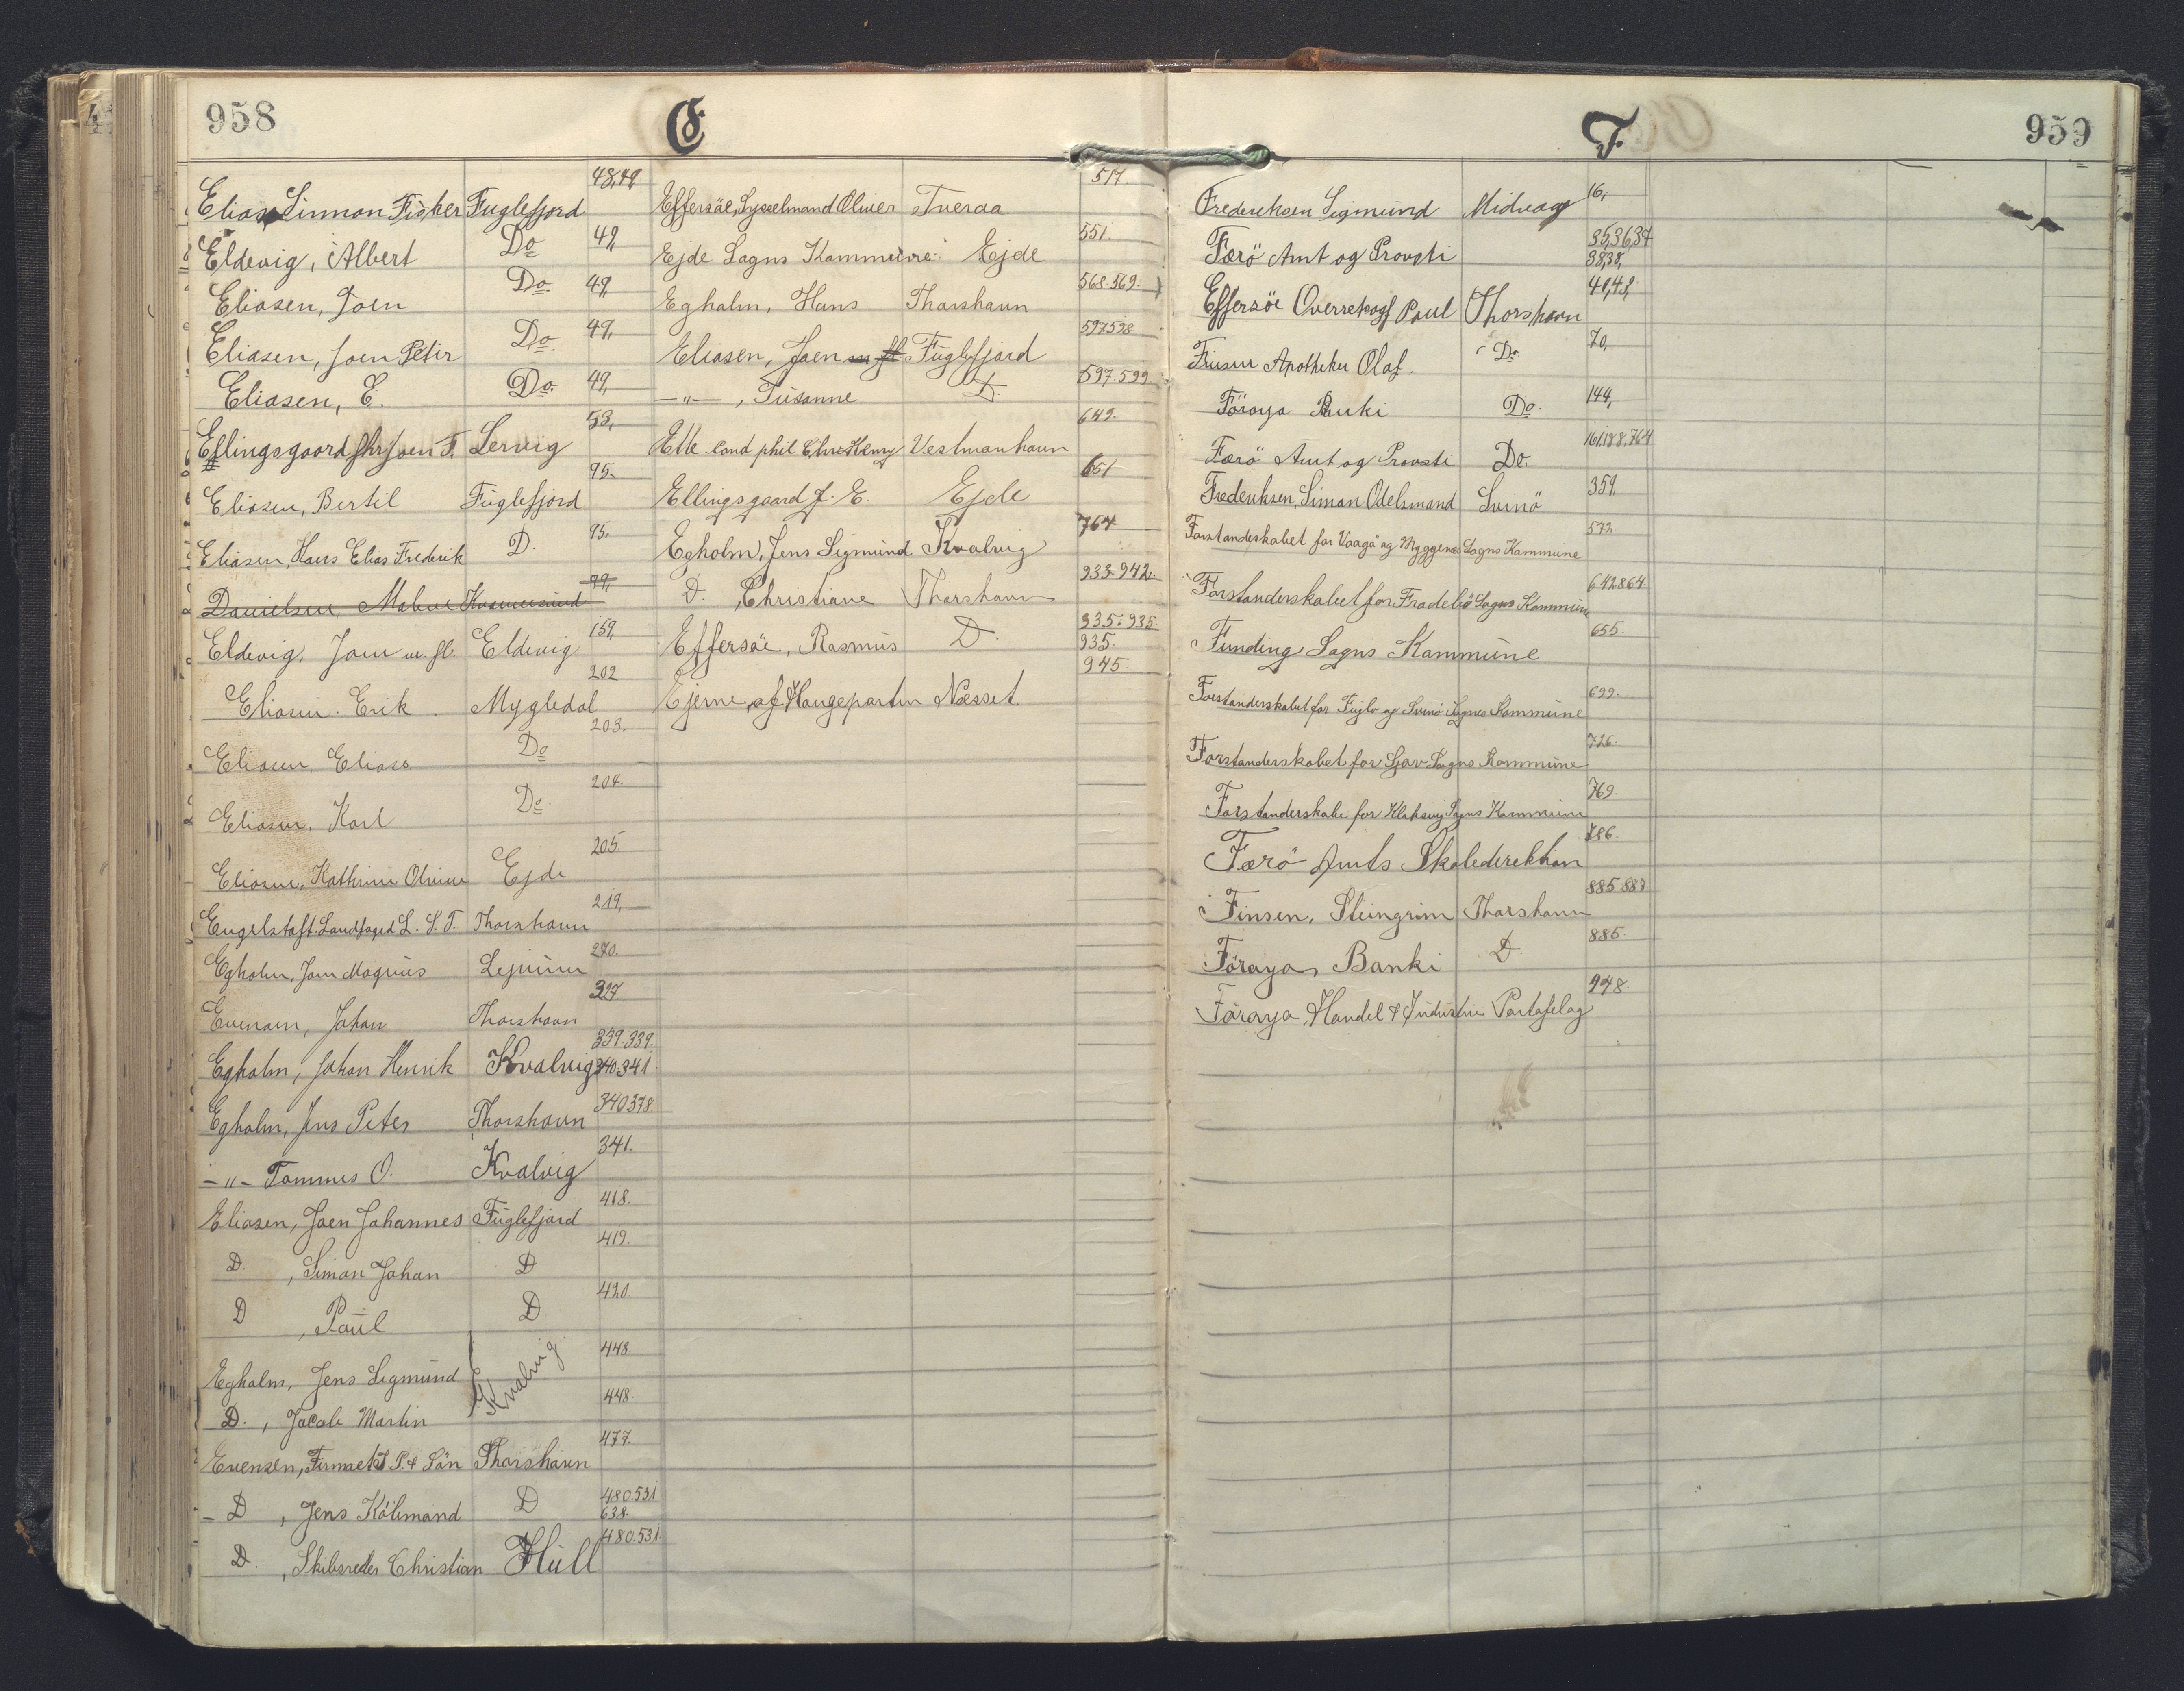 958
E.
Elias, Simmon Fisker Fuglefjord 48,49
Eldevig, Albert Do 49,
Eliasen, Joen Do 49,
Eliasen, Joen Peter Do. 49,
Eliasen, E. Do 49,
Ellingsgaard Joen F. Lervig 53,
Eliasen, Bertil Fuglefjord 95.
Eliasen, Hans Elias Frederik D. 95.
Danielsen, Kvannesund 99,
Eldevig, Joen m. fl. Eldevig 159,
Eliasen. Erik. Mygledal 202
Eliasen, Elias Do 203.
Eliasen, Karl Do 204.
Eliasen, Kathrine Ejde 205.
Engelstoft Landfoged L. S. T. Thorshavn 219,
Egholm, Magnus 270.
Evensen, Johan Thorshavn 327
Egholm, Johan Henrik Kvalvig 339.339. 340.341.
Egholm, Jens Peter Thorshavn 340 378.
-"- Tommes O. Kvalvig 341.
Eliasen, Joen Johannes Fuglefjord 418.
D. , Simon Johan D 419.
D , Paul D 420.
Egholm, Jens Sigmund Kvalvig 448.
D. , Jacob Martin 448.
Evensen, Firmaet J. P. & Sön Thorshavn 477.
- D , Jens Kölmand D 480.531 638.
D. , Skibsreder Christian Hull 480.531
Effersöe, Sysselmand Oliver Tveraa 517.
Ejde Sogns Kommune Ejde 551.
Egholm, Hans Thorshavn 568.569.
Eliasen, Joen m. fl. Fuglefjord 597 598
-"- , Susanne D. 597.599
cand phil Henry Vestmanhavn 649.
Ellingsgaard J. E. Ejde 651
Egholm, Jens Sigmund Kvalvig 764
D. , Christiane Thorshavn 933-942.
Effersöe, Rasmus D. 935.935 935.
Ejerne af Haugeparten Næsset 945.
959
F.
Frederiksen Sigmund Midvaag 16,
Færö Amt og Provsti 35,36,37 38,38,
Effersöe Overretssagf Poul Thorshavn 41,43,
Finsen Apotheker Olaf. Do 70,
Föroya Banki Do. 144,
Færö Amt og Provsti Do. 161.188.764
Frederiksen, Simon Odelsmand Svinö 359.
Forstanderskabet for Vaagö og Myggenæs Sogns Kommune 572
Forstanderskabet for Frodebö Sogns Kommune 642 864
Funding Sogns Kommune 655.
Forstanderskabet for Fuglö og Svinö Sognes Kommune 699.
Forstanderskabet for Sjov Sogns Kommune 726.
Forstanderskabe for Klaksvig Sogns Kommune 769.
Færö Amts Skoledirektion 786.
Finsen, Steingrim Thorshavn 885 887
Föroya Banki D 885.
Föroya Handel & Industri Partafelag 948.